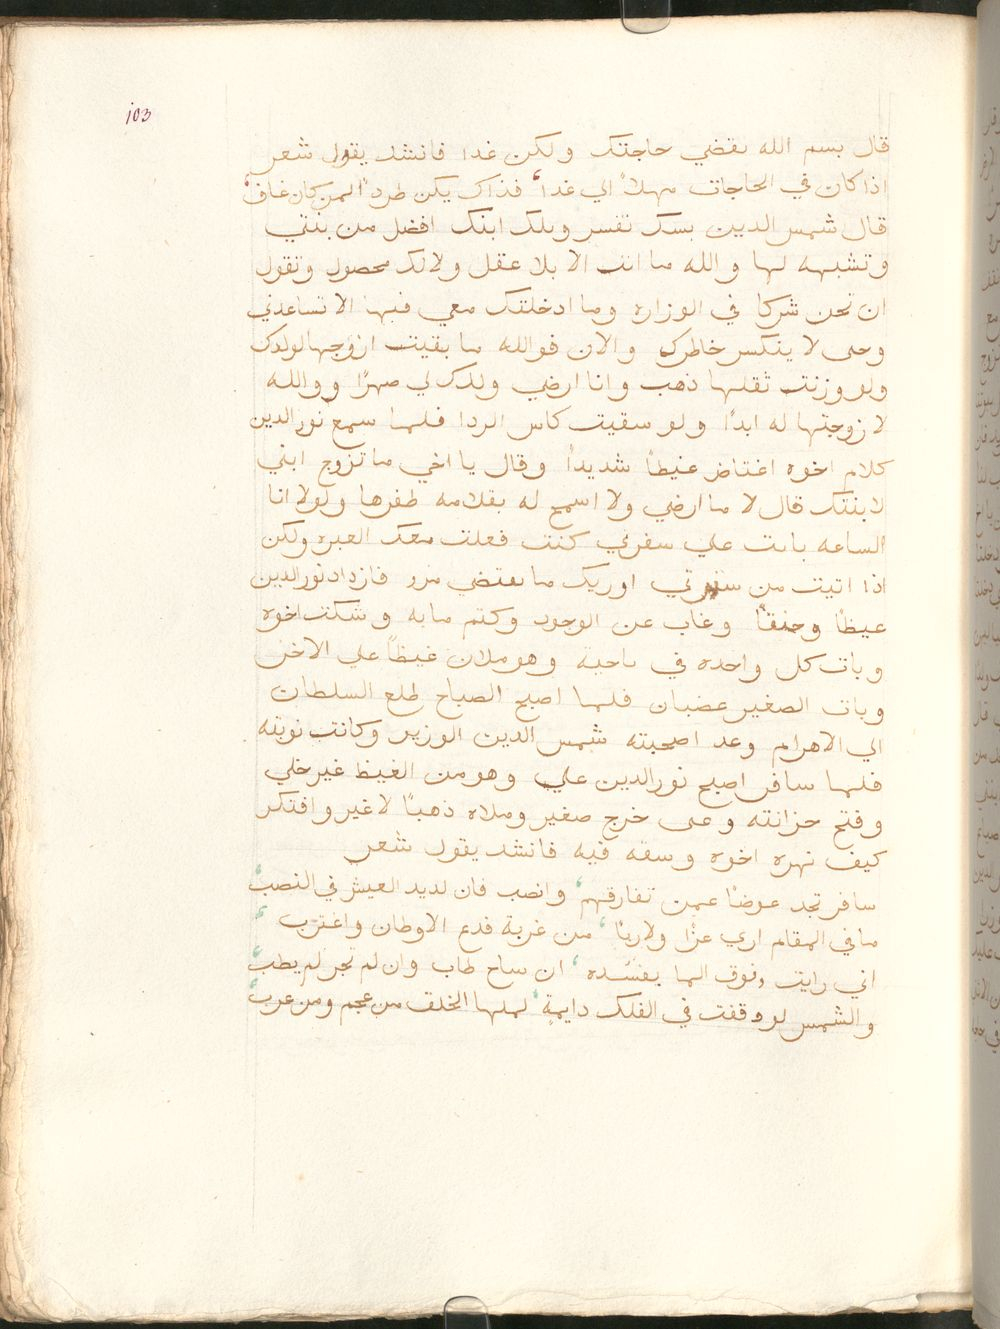 103
قال بسم الله نقضي حاجتك ولكن غدا فانشد يقول شعر
اذا كان في الحاجات مهلاً الي غدا، فذاك يكن طرداً لمن كان غاف
قال شمس الدين بسك تفسر وبلك ابنك افضل من بنتي
وتشبهه لها والله ما انت الا بلا عقل ولا لك محصول وتقول
ان نحن شركا في الوزاره وما ادخلتك معي فيها الا تساعدني
وحتى لا ينكسر خاطرك والان فوالله ما بقيت ازوجها لولدك
ولو وزنت ثقلها ذهب وانا ارضي ولدك لي صهرًا ووالله
لا زوجتها له ابدًا ولو سقيت كاس الردا فلما سمع نور الدين
كلام اخوه اغتاض غيطاً شديداً وقال يا اخي ما تزوج ابني
لابنتك قال لا ما ارضي ولا اسمح له بقلامه طفرها ولولا انا
الساعه بابت علي سفرتي كنت فعلت معك العبره ولكن
اذا اتيت من سفرتي اوريك ما يقتضي مرو فازداد نور الدين
غيظاً وحنقاً وغاب عن الوجود وكتم ما به وسكت اخوه
وبات كل واحده في ناحية وهو ملان غيظاً علي الاخر
وبات الصغير غضبان فلما اصبح الصباح طلع السلطان
الي الاهرام وعد اصحبته شمس الدين الوزير وكانت نوبته
فلما سافر اصبح نور الدين علي وهو من الغيظ غير خلي
وفتح خزانته وعبى خرج صغير وملاه ذهبًا لا غير وافتكر
كيف نهره اخوه وسقه فيه فانشد يقول شعر
سافر تجد عوضًا عمن تفارقهم، وانصب فان لديد العيش في النصب
ما في المقام اري عزًا ولا ربًا، من غربة فدع الاوطان واغترب
اني رايت وقوف الما يفسده، ان ساح طاب وان لم تجر لم يطب
والشمس لو وقفت في الفلك دايمةٍ، لملها الخلق من عجم ومن عرب